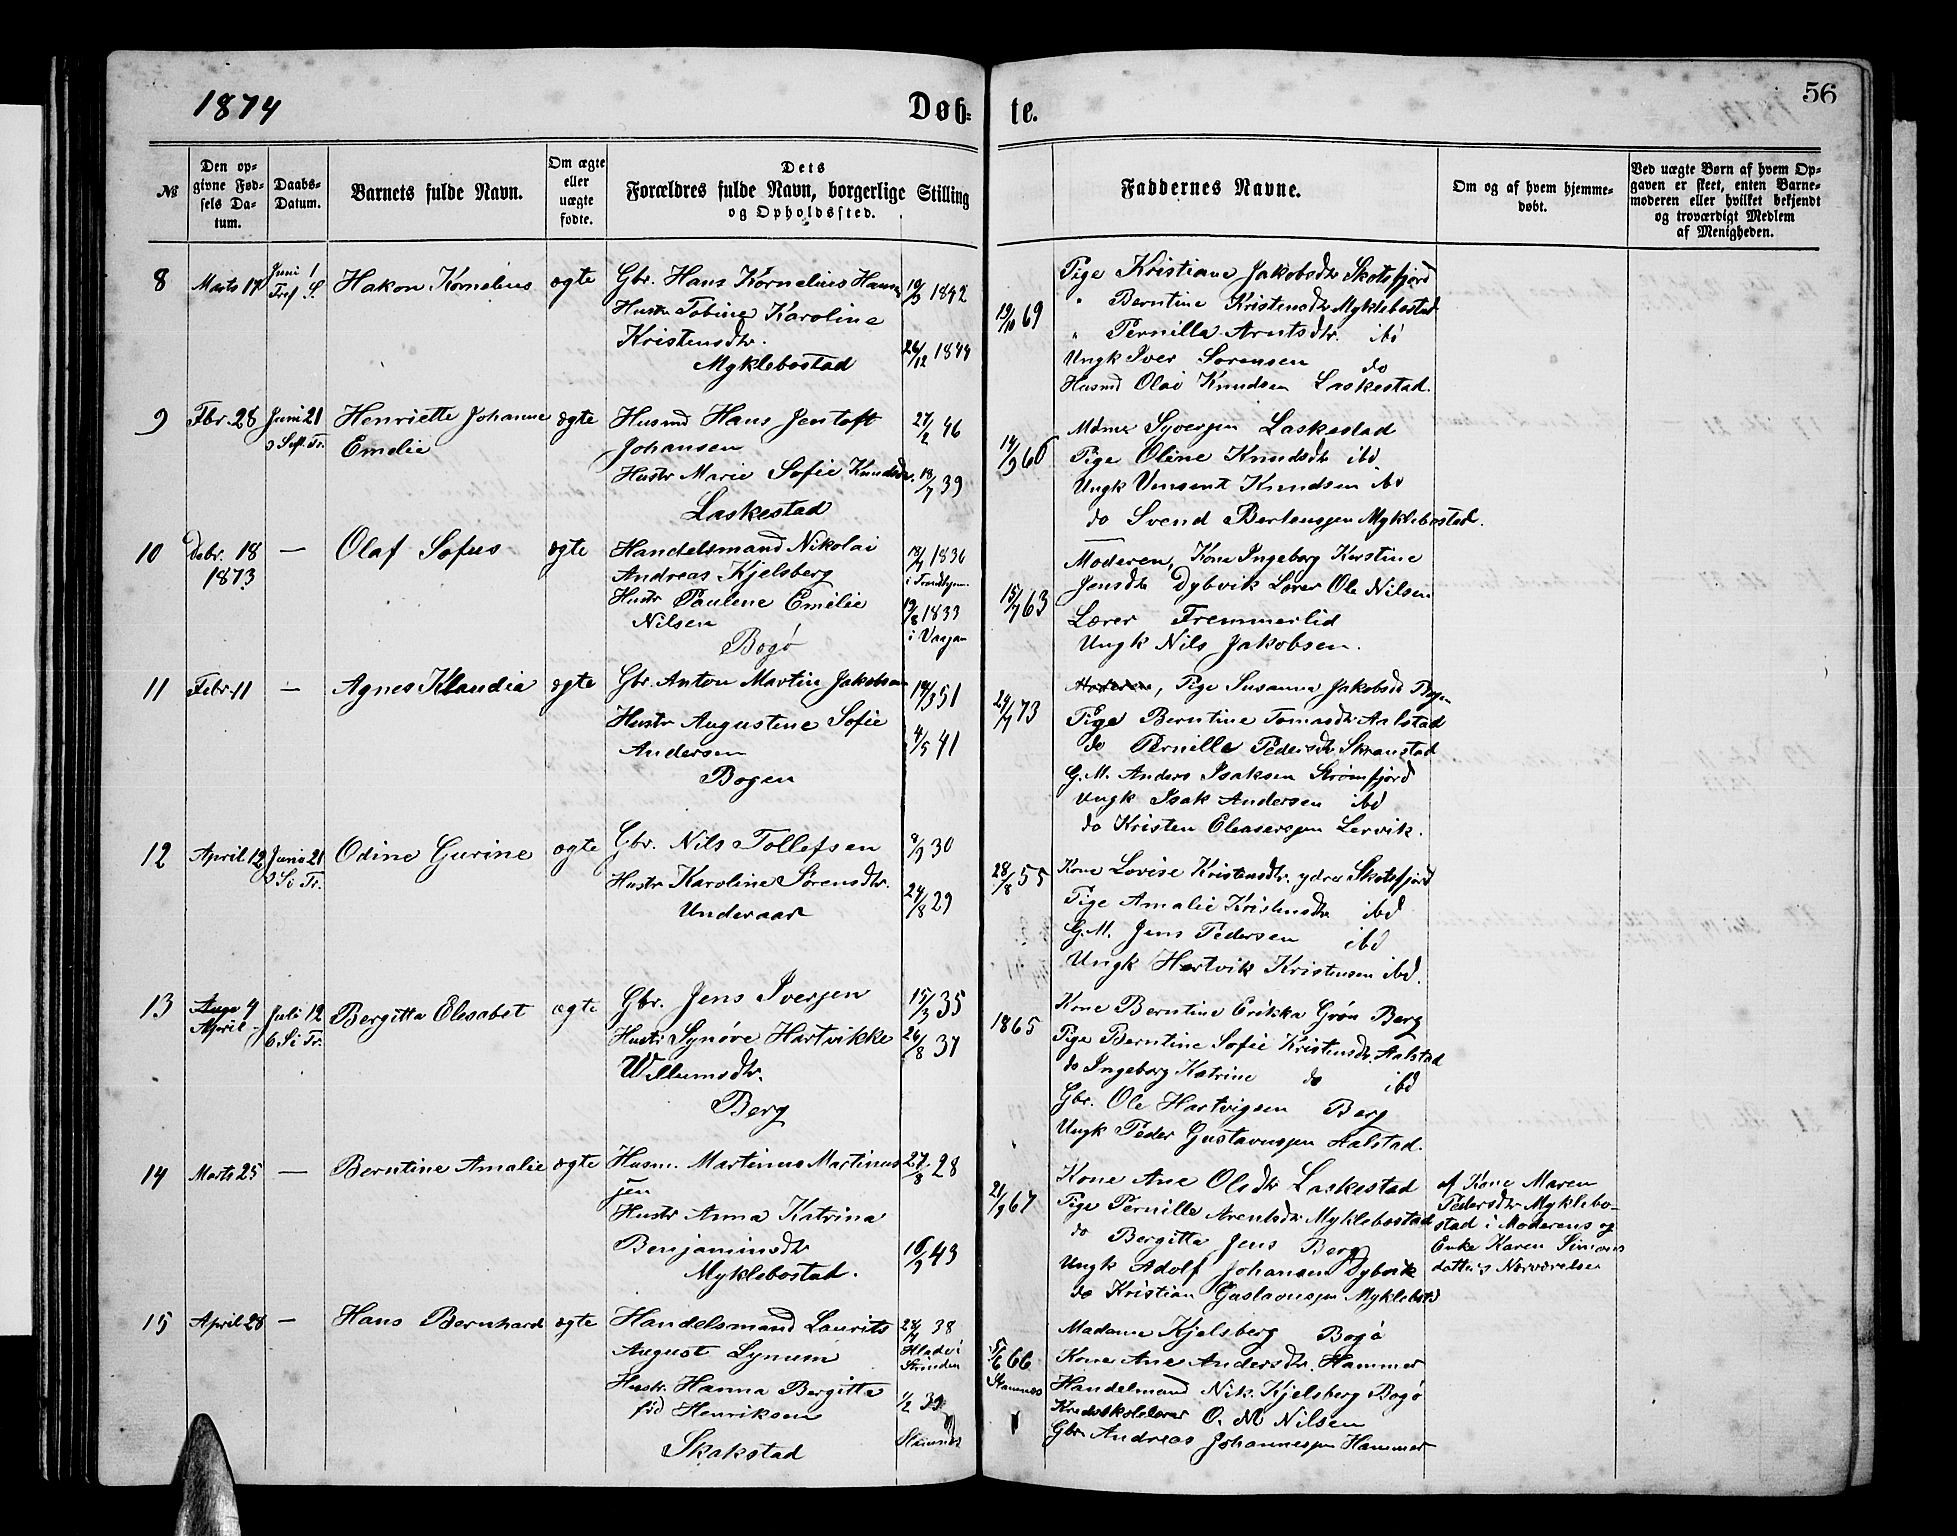 1874
Døb-
te.
56
№
Den op-
givne Fød-
sels Da-
tum.
Daabs-
Datum.
Barnets fulde Navn.
Om ægte
eller
uægte
fødte.
Dets
Forældres fulde Navn, borgerlige Stilling
og Opholdssted.
Faddernes Navne.
Om og af hvem hjemme-
døbt.
Ved uægte Børn af hvem Op-
gaven er skeet, enten Barne-
moderen eller hvilket bekjendt
og troværdigt Medlem
af Menigheden.
8 Marts 17 Juni 1 Tref S. Hakon Kornelius ægte
Gbr. Hans Kornelius Hansen 1842
Hustr Tobine Karoline
Kristensdtr. 26/12 1844
Myklebostad
19/10 69
Pige Kristiane Jakobsdtr Skotsfjord
" Berntine Kristensdtr Myklebostad
" Pernilla Arntsdtr. ibd
Ungk Iver Sørensen do
Husmd Olai Knudsen Laskestad.
9 Fbr. 28 Juni 21 3 S. eft. Tr. Henriette Johanne ægte
Emelie
Husmd Hans Jentoft 27/2 46
Johansen
Hustr Marie Sofie Knudsdtr. 13/7 39
Laskestad
14/9 66
Mdme Syversen Laskestad
Pige Oline Knudsdtr ibd.
Ungk Vinsent Knudsen ibd
do Svend Bertenssen Myklebostad.
10 Debr. 18 — Olaf Sofus ægte
1873
Handelsmand Nikolai 13/7 1836
Andreas Kjelsberg i Trondhjem.
Hustr Pauline Emilie 19/8 1833
Nilsen i Vaagan
Bogø
15/7 63
Moderen, Kone Ingeborg Kerstine
Jensdtr Dybvik Lærer Ole Nilsen
Lærer Fremmerlid
Ungk Nils Jakobsen.
11 Febr. 11 — Agnes Klaudia ægte
Gbr. Anton Martin Jakobsen 19/3 51
Hustr Augustine Sofie
Andersen 4/5 41
Bogen
24/7 73
Moderen, Pige Susanna Jakobsd Bogen
Pige Berntine Tomasdtr Aalstad
do Pernille Pedersdtr Skranstad
G.M. Anders Isaksen Strømfjord
Ungk Isak Andersen ibd
do Kristen Eleasersen Lervik.
12 April 12 Juni 21 3 S. e Tr. Odine Gurine ægte
Gbr. Nils Tollefsen 8/9 30
Hustr Karoline Sørensdtr. 24/8 29
Underaar
28/8 55
Kone Lovise Kristensdtr. ydre Skotsfjord
Pige Amalie Kristensdtr ibd
G.M. Jens Pedersen ibd
Ungk Hartvik Kristensen ibd.
13 April Juli 12 6 S. e Tr. Bergitta Elesabet ægte
Gbr. Jens Iversen 15/3 35
Hustr Synøve Hartvikke 26/8 37
Willumsdtr.
Berg
1865
Kone Berntine Erikka Grøn Berg
Pige Berntine Sofie Kristensdtr. Aalstad
do Ingeborg Katrine do ibd
Gbr. Ole Hartvigsen Berg
Ungk Peder Gustavussen Aalstad.
14 Marts 25 — Berntine Amalie ægte
Husm. Martinus Martinus 27/8 28
sen
Hustr Anna Katrina
Benjaminsdtr 16/9 43
Myklebostad.
21/9 67
Kone Ane Olsdtr Laskestad
Pige Pernille Arentsdtr Myklebostad
do Bergitta Jens Berg
Ungk Adolf Johansen Dybvik
do Kristian Gustavussen Myklebstd
af Kone Maren
Pedersdtr Myklebo-
stad i Moderens og
Enke Karen Simons
datters Nærværelse
15 April 28 — Hans Bernhard ægte
Handelsmand Laurits 24/7 38
August Lynum Hlade i
Strinden
Hustr. Hanna Bergitta 1/2 39
fød Henriksen
Skakstad Stamnes
5/6 66
Stamnes
Madame Kjelsberg Bogø
Kone Ane Andersdtr. Hammer
Handelmand Nik. Kjelsberg Bogø
Kredsskolelærer O. M Nilsen
Gbr Andreas Johannessen Hammer